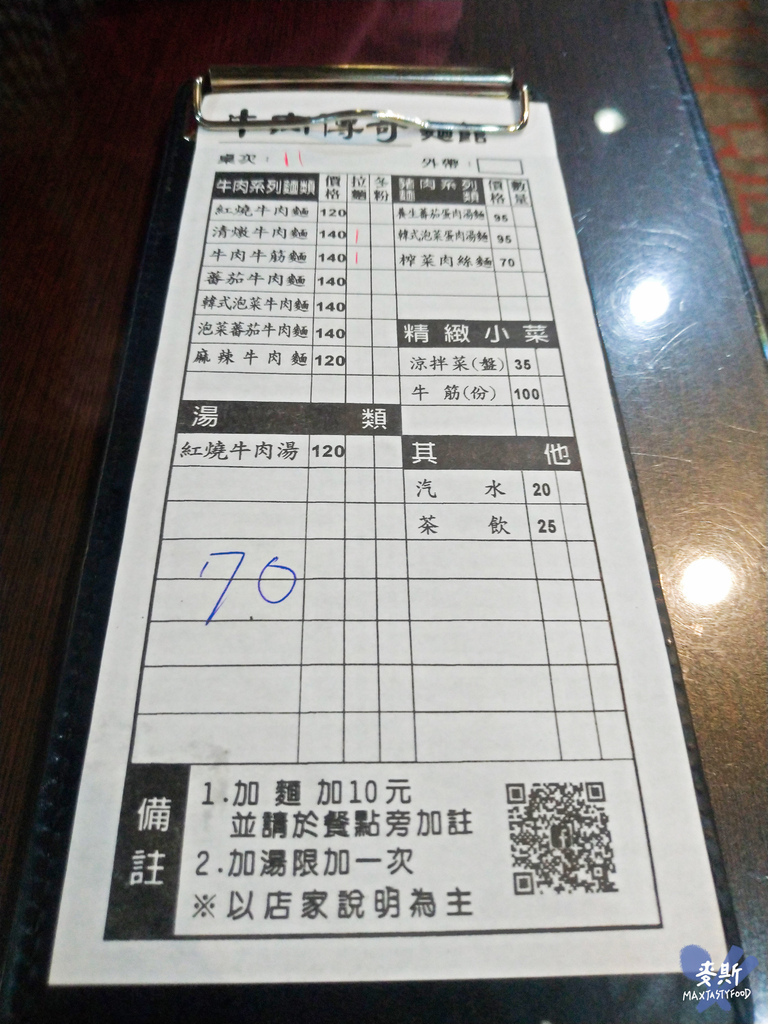 牛肉傳奇麵館
桌次：11 外帶：
牛肉系列麵類 價格 拉麵 冬粉
紅燒牛肉麵 120
清燉牛肉麵 140 |
牛肉牛筋麵 140 |
蕃茄牛肉麵 140
韓式泡菜牛肉麵 140
泡菜蕃茄牛肉麵 140
麻辣牛肉麵 120
湯類
紅燒牛肉湯 120
70
豬肉系列麵類 價格 數量
養生蕃茄蛋肉湯麵 95
韓式泡菜蛋肉湯麵 95
榨菜肉絲麵 70
精緻小菜
涼拌菜(盤) 35
牛筋(份) 100
其他
汽水 20
茶飲 25
備註
1.加麵加10元
並請於餐點旁加註
2.加湯限加一次
※以店家說明為主
麥斯
MAXTASTYFOOD